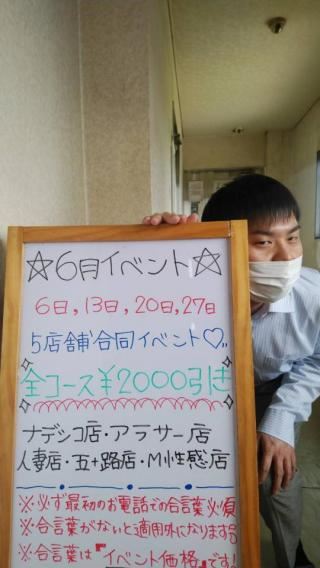 ☆6月イベント☆
6日,13日,20日,27日
5店舗合同イベント♡
全コース¥2000引き
ナデシコ店・アラサー店
人妻店・五十路店・M性感店
※必ず最初のお電話での合言葉必須
※合言葉がないと適用外になります
※合言葉は『イベント価格』です!